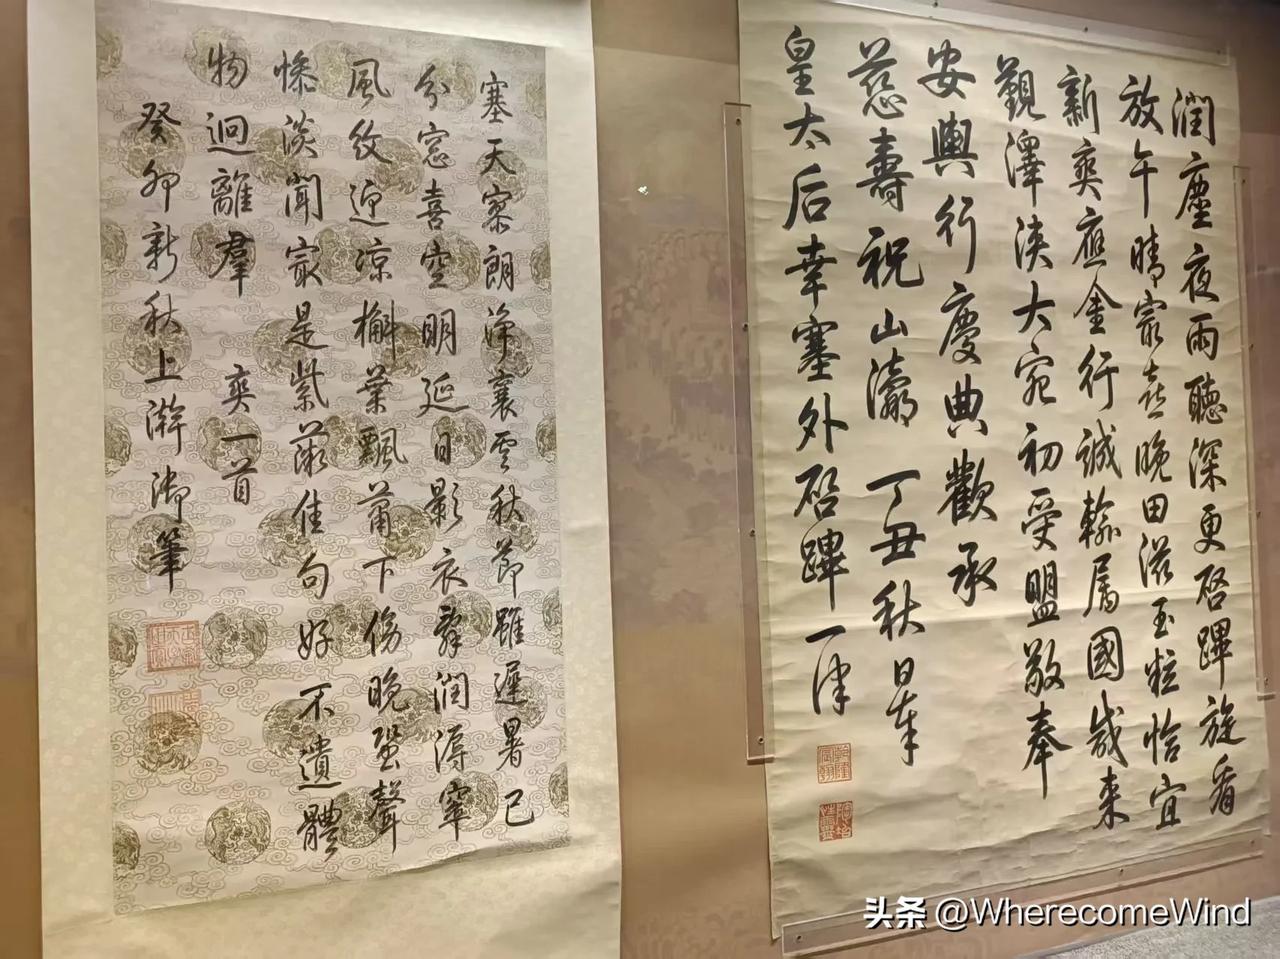 潤塵夜雨聽深更啓蹕旋看
放午晴最喜晚田滋玉粒恰宜
新爽應金行誠輸屬國歲来
覲澤浹大宛初受盟敬奉
安輿行慶典歡承
慈壽祝山瀛 丁丑秋日奉
皇太后幸塞外啓蹕一律
乾隆宸翰
塞天寥朗淨褰雲秋節雖遲暑已
分窓喜空明延日影衣辭潤溽窣
風紋迎涼槲葉飄蕭下傷晚蛩聲
惨淡聞最是紫薇佳句好不遺體
物迥離羣 爽一首
癸卯新秋上澣御筆
头条 @WherecomeWind